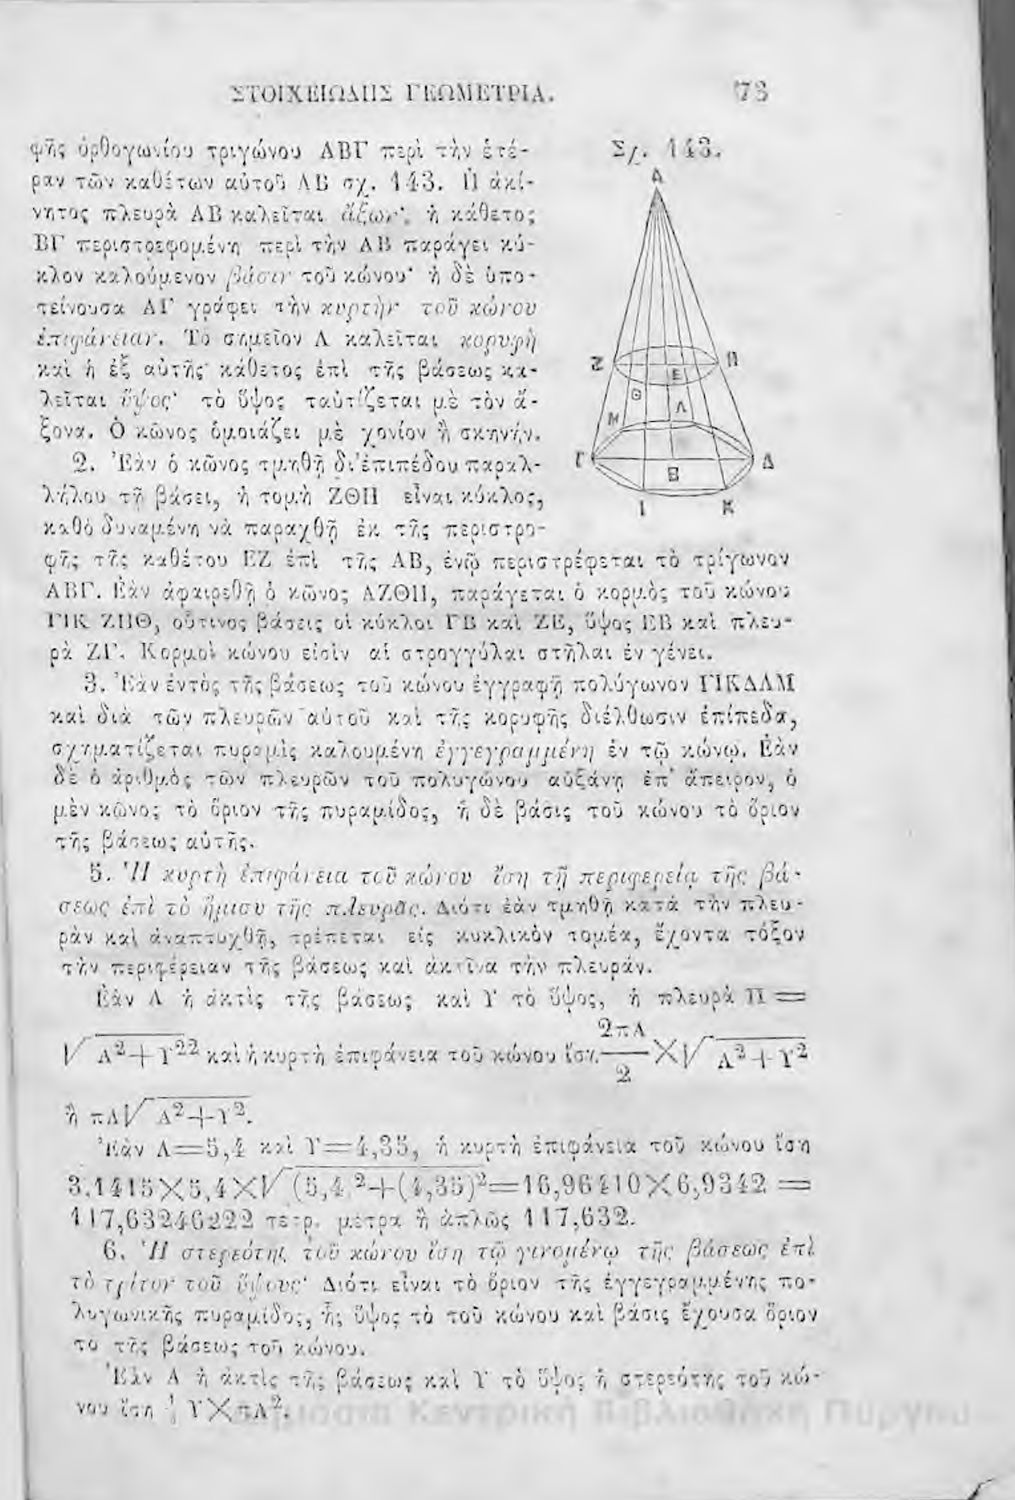 ΣΤΟΙΧΕΙΩΔΗΣ ΓΕΩΜΕΤΡΙΑ. 73
φῆς ὀρθογωνίου τριγώνου ΑΒΓ περὶ τὴν ἑτέ-
ραν τῶν καθέτων αὐτοῦ ΑΒ σχ. 143. Ἡ ἀκί-
νητος πλευρὰ ΑΒ καλεῖται ἄξων· ἡ κάθετος
ΒΓ περιστρεφομένη περὶ τὴν ΑΒ παράγει κύ-
κλον καλούμενον βάσιν τοῦ κώνου· ἡ δὲ ὑπο-
τείνουσα ΑΓ γράφει τὴν κυρτὴν τοῦ κώνου
ἐπιφάνειαν. Τὸ σημεῖον Α καλεῖται κορυφὴ
καὶ ἡ ἐξ αὐτῆς κάθετος ἐπὶ τῆς βάσεως κα-
λεῖται ὕψος· τὸ ὕψος ταὐτίζεται μὲ τὸν ἄ-
ξονα. Ὁ κῶνος ὁμοιάζει μὲ χονίον ἢ σκηνήν.
2. Ἐὰν ὁ κῶνος τμηθῇ δι' ἐπιπέδου παραλ-
λήλου τῇ βάσει, ἡ τομὴ ΖΘΗ εἶναι κύκλος,
καθὸ δυναμένη νὰ παραχθῇ ἐκ τῆς περιστρο-
φῆς τῆς καθέτου ΕΖ ἐπὶ τῆς ΑΒ, ἐνῷ περιστρέφεται τὸ τρίγωνον
ΑΒΓ. Ἐὰν ἀφαιρεθῇ ὁ κῶνος ΑΖΘΗ, παράγεται ὁ κορμὸς τοῦ κώνου
ΓΙΚ ΖΗΘ, οὗτινος βάσεις οἱ κύκλοι ΓΒ καὶ ΖΕ, ὕψος ΕΒ καὶ πλευ-
ρὰ ΖΓ. Κορμοὶ κώνου εἰσὶν αἱ στρογγύλαι στῆλαι ἐν γένει.
3. Ἐὰν ἐντὸς τῆς βάσεως τοῦ κώνου ἐγγραφῇ πολύγωνον ΓΙΚΔΛΜ
καὶ διὰ τῶν πλευρῶν αὐτοῦ καὶ τῆς κορυφῆς διέλθωσιν ἐπίπεδα,
σχηματίζεται πυραμὶς καλουμένη ἐγγεγραμμένη ἐν τῷ κώνῳ. Ἐὰν
δὲ ὁ ἀριθμὸς τῶν πλευρῶν τοῦ πολυγώνου αὐξάνῃ ἐπ' ἄπειρον, ὁ
μὲν κῶνος τὸ ὅριον τῆς πυραμίδος, ἡ δὲ βάσις τοῦ κώνου τὸ ὅριον
τῆς βάσεως αὐτῆς.
5. Ἡ κυρτὴ ἐπιφάνεια τοῦ κώνου ἴση τῇ περιφερείᾳ τῆς βά-
σεως ἐπὶ τὸ ἥμισυ τῆς πλευρᾶς. Διότι ἐὰν τμηθῇ κατὰ τὴν πλευ-
ρὰν καὶ ἀναπτυχθῇ, τρέπεται εἰς κυκλικὸν τομέα, ἔχοντα τόξον
τὴν περιφέρειαν τῆς βάσεως καὶ ἀκτῖνα τὴν πλευράν.
Ἐὰν Α ἡ ἀκτὶς τῆς βάσεως καὶ Υ τὸ ὕψος, ἡ πλευρὰ Π =
√Α²+Υ²² καὶ ἡ κυρτὴ ἐπιφάνεια τοῦ κώνου ἴση 2πΑ/2 ×√Α²+Υ²
ἢ πΑ√Α²+Υ².
Ἐὰν Α=5,4 καὶ Υ=4,35, ἡ κυρτὴ ἐπιφάνεια τοῦ κώνου ἴση
3.1415×5,4×√(5,4²+(4,35)²=16,96410×6,9342 =
117,63246222 τετρ. μέτρα ἢ ἁπλῶς 117,632.
6. Ἡ στερεότης τοῦ κώνου ἴση τῷ γινομένῳ τῆς βάσεως ἐπὶ
τὸ τρίτον τοῦ ὕψους· Διότι εἶναι τὸ ὅριον τῆς ἐγγεγραμμένης πο-
λυγωνικῆς πυραμίδος, ἧς ὕψος τὸ τοῦ κώνου καὶ βάσις ἔχουσα ὅριον
τὸ τῆς βάσεως τοῦ κώνου.
Ἐὰν Α ἡ ἀκτὶς τῆς βάσεως καὶ Υ τὸ ὕψος ἡ στερεότης τοῦ κώ-
νου ἴση Υ×πΑ².
Σχ. 143.
Α
Ζ Ε Η
Θ
Μ Λ
Γ Β Δ
Ι Κ
Δημόσια Κεντρική Βιβλιοθήκη Πύργου